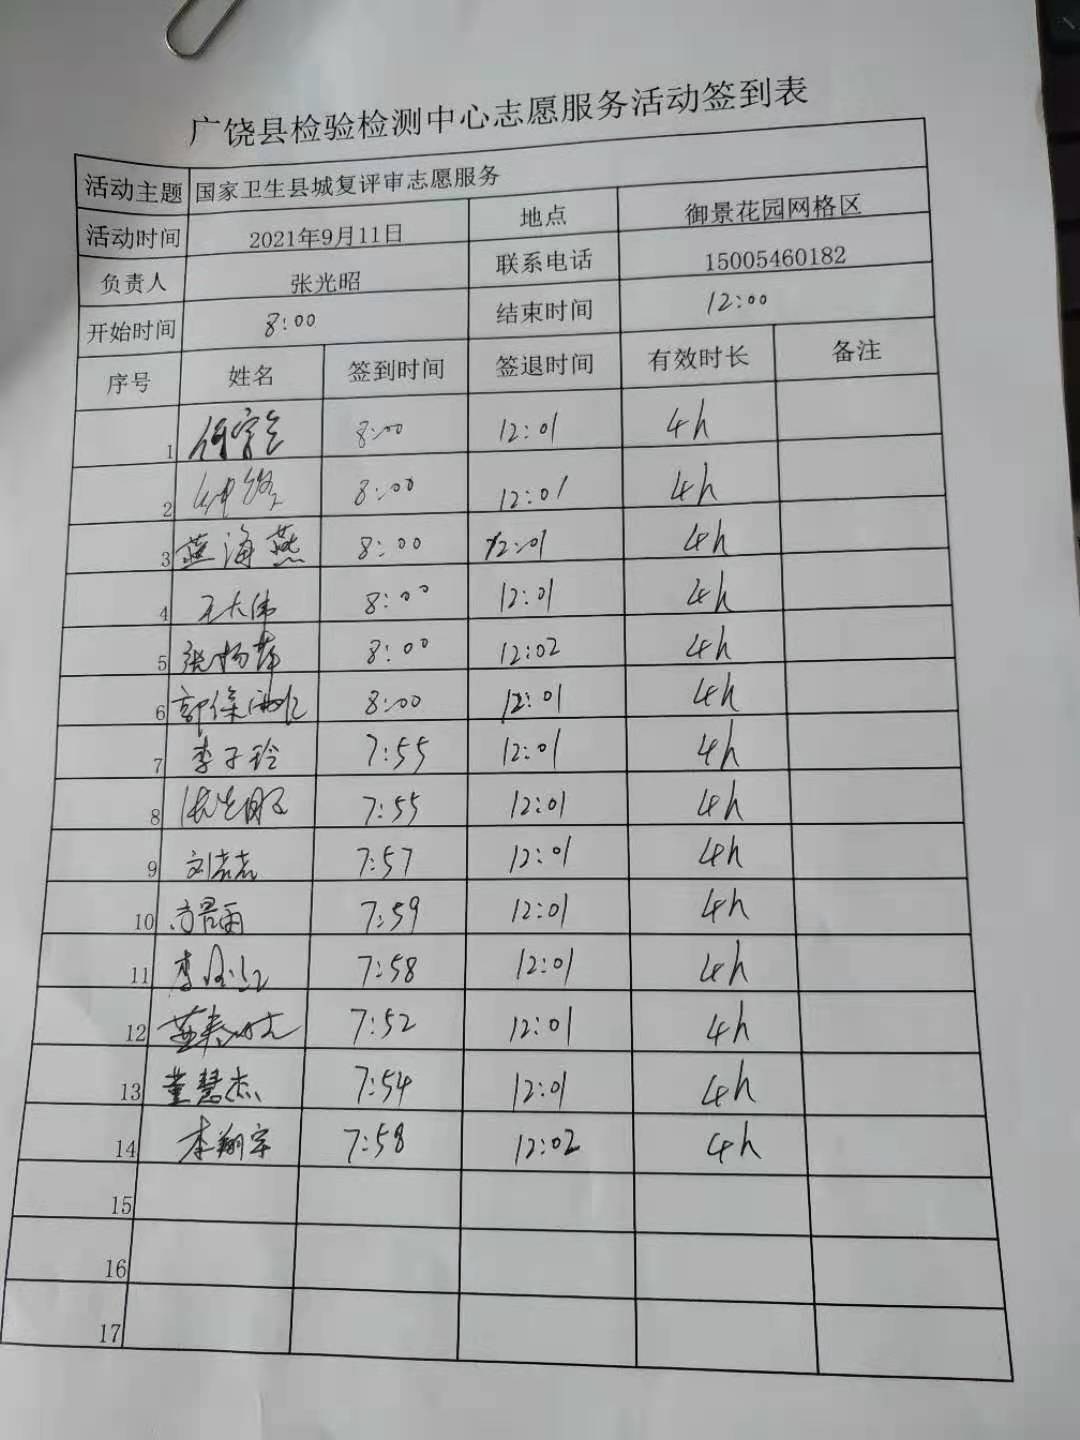 广饶县检验检测中心志愿服务活动签到表
活动主题 国家卫生县城复评审志愿服务
活动时间 2021年9月11日 地点 御景花园网格区
负责人 张光昭 联系电话 15005460182
开始时间 8:00 结束时间 12:00
序号 姓名 签到时间 签退时间 有效时长 备注
1 8:00 12:01 4h
2 8:00 12:01 4h
3 燕海燕 8:00 12:01 4h
4 王大伟 8:00 12:01 4h
5 张杨萍 8:00 12:02 4h
6 8:00 12:01 4h
7 李子玲 7:55 12:01 4h
8 张光昭 7:55 12:01 4h
9 7:57 12:01 4h
10 7:59 12:01 4h
11 7:58 12:01 4h
12 7:52 12:01 4h
13 董慧杰 7:54 12:01 4h
14 李翔宇 7:58 12:02 4h
15
16
17